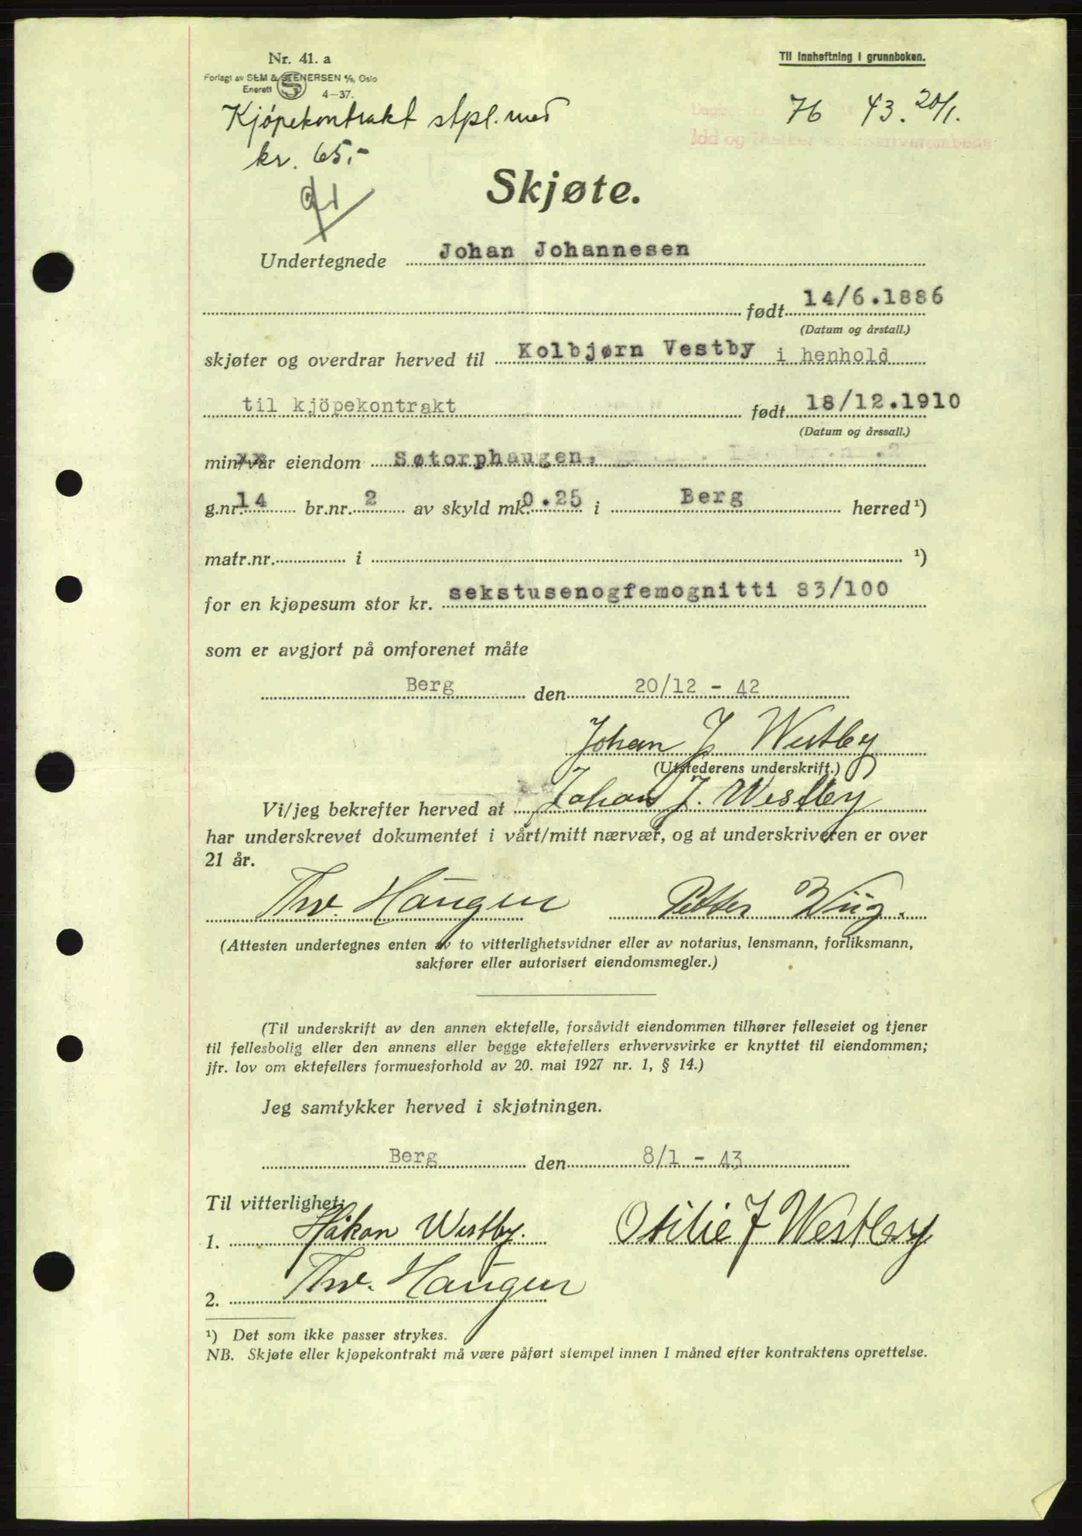 Nr. 41. a
Forlagt av SEM & STENERSEN A/S, Oslo
Enerett 4-37.
Til innheftning i grunnboken.
Kjöpekontrakt stpl. med
kr. 65,-
76 43. 20/1.
Skjøte.
Undertegnede Johan Johannesen
født 14/6.1886
(Datum og årstall.)
skjøter og overdrar herved til Kolbjørn Vestby i henhold
til kjöpekontrakt født 18/12.1910
(Datum og årssall.)
min/vår eiendom Søtorphaugen,
g.nr. 14 br.nr. 2 av skyld mk. 0.25 i Berg herred ¹)
matr.nr. i ¹)
for en kjøpesum stor kr. sekstusenogfemognitti 83/100
som er avgjort på omforenet måte
Berg den 20/12 - 42
Johan J. Westby
(Utstederens underskrift.)
Vi/jeg bekrefter herved at Johan J. Westby
har underskrevet dokumentet i vårt/mitt nærvær, og at underskriveren er over
21 år.
Thv. Haugen Petter Wiig.
(Attesten undertegnes enten av to vitterlighetsvidner eller av notarius, lensmann, forliksmann,
sakfører eller autorisert eiendomsmegler.)
(Til underskrift av den annen ektefelle, forsåvidt eiendommen tilhører felleseiet og tjener
til fellesbolig eller den annens eller begge ektefellers erhvervsvirke er knyttet til eiendommen;
jfr. lov om ektefellers formuesforhold av 20. mai 1927 nr. 1, § 14.)
Jeg samtykker herved i skjøtningen.
Berg den 8/1 - 43
Til vitterlighet:
1. Håkon Westby. Otilie J Westbey
2. Thv. Haugen
¹) Det som ikke passer strykes.
NB. Skjøte eller kjøpekontrakt må være påført stempel innen 1 måned efter kontraktens oprettelse.